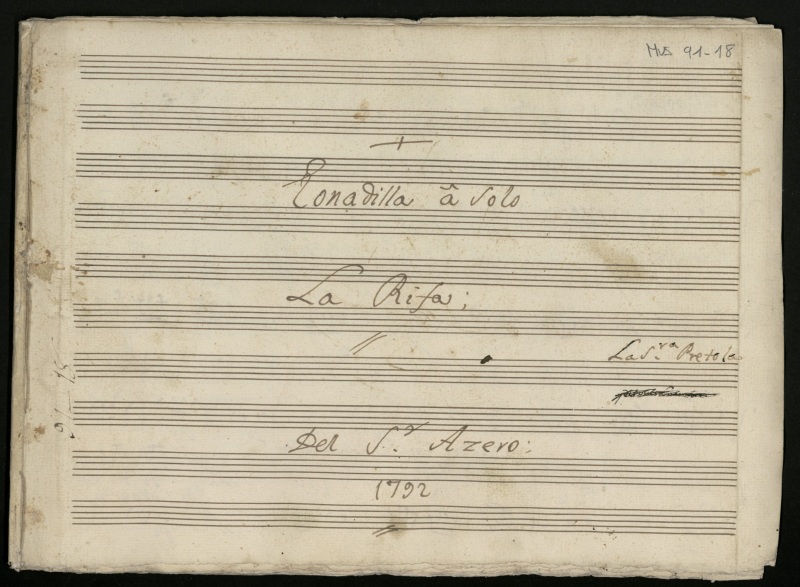 Mus 91-18
Tonadilla â Solo
La Rifa;
La S.ra Pretola
Del S.r Azero;
1792